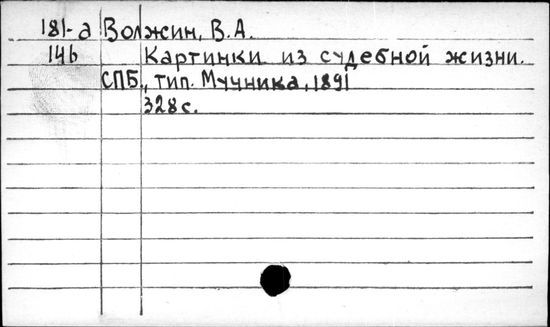 181-а Волжин, В.А.
146 Картинки из судебной жизни.
СПБ., тип. Мучника, 1891
328 с.